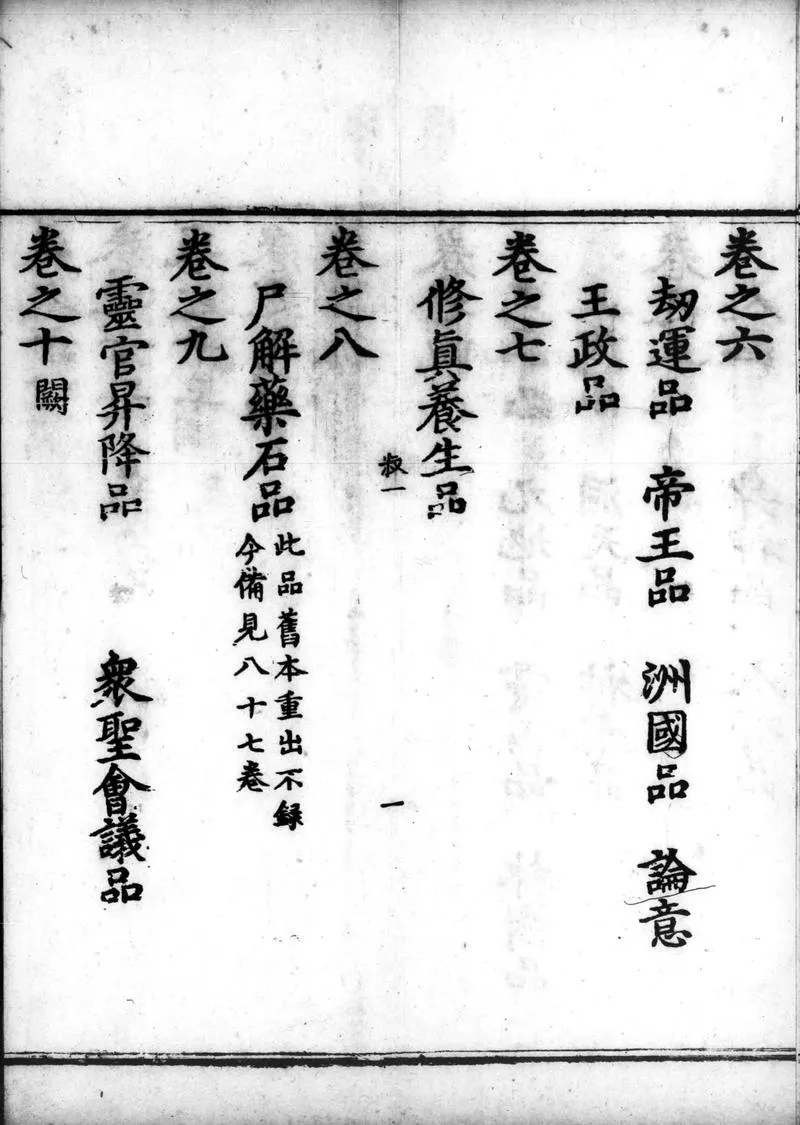 卷之六
劫運品 帝王品 洲國品 論意
王政品
卷之七
修眞養生品
叔一 一
卷之八
尸解藥石品 此品舊本重出不録
今備見八十七卷
卷之九
靈官昇降品 衆聖會議品
卷之十 闕